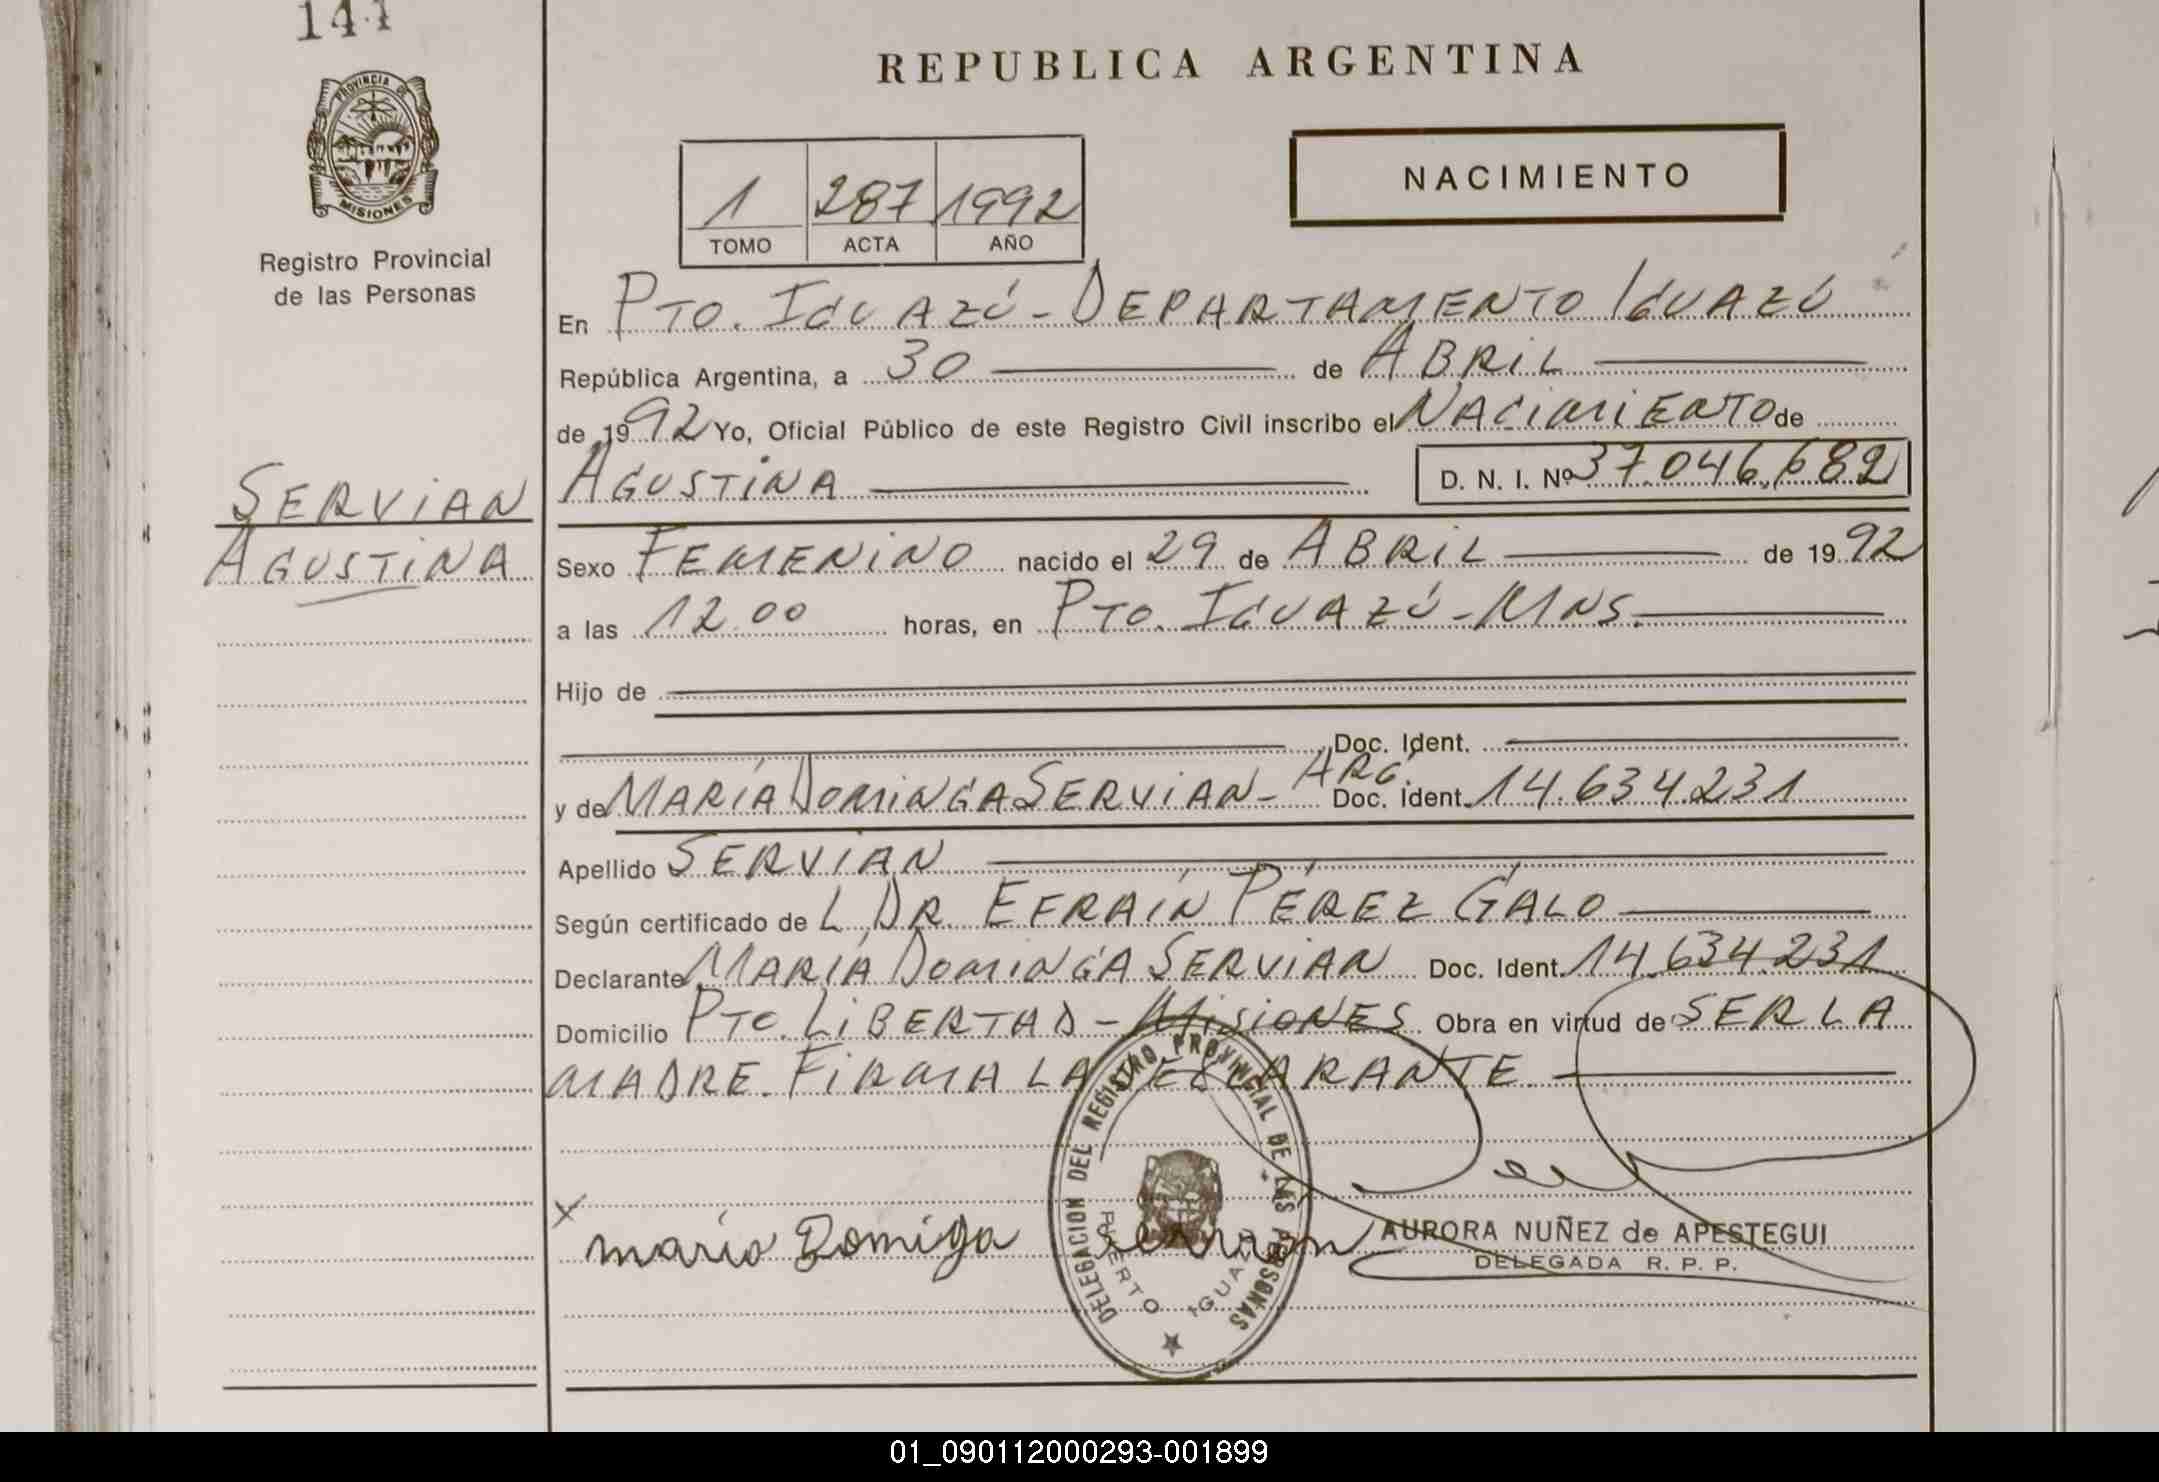 PROVINCIA DE
MISIONES
Registro Provincial
de las Personas
SERVIAN
AGUSTINA
REPUBLICA ARGENTINA
1 287 1992
TOMO ACTA AÑO
NACIMIENTO
En PTO. IGUAZÚ - DEPARTAMENTO IGUAZÚ
República Argentina, a 30 de ABRIL
de 1992 Yo, Oficial Público de este Registro Civil inscribo el NACIMIENTO de
AGUSTINA D. N. I. Nº 37.046.682
Sexo FEMENINO nacido el 29 de ABRIL de 1992
a las 12.00 horas, en PTO. IGUAZÚ - MNS.
Hijo de
Doc. Ident.
y de MARÍA DOMINGA SERVIAN - ARG. Doc. Ident. 14.634.231
Apellido SERVIAN
Según certificado de L. DR. EFRAÍN PÉREZ GALO
Declarante MARÍA DOMINGA SERVIAN Doc. Ident. 14.634.231
Domicilio PTO. LIBERTAD - MISIONES Obra en virtud de SER LA
MADRE. FIRMA LA DECLARANTE
x
maria Domiga servian
AURORA NUÑEZ de APESTEGUI
DELEGADA R. P. P.
DELEGACION DEL REGISTRO PROVINCIAL DE LAS PERSONAS
PUERTO IGUAZU
01_090112000293-001899